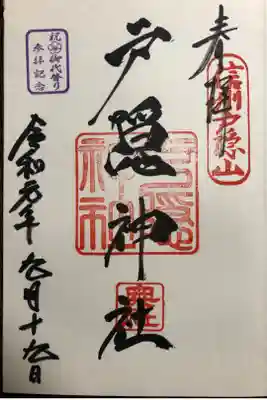 奉拝
信州戸隠山
戸隠神社
戸隠神社
奥社
祝御代替り
参拝記念
令和元年九月十九日